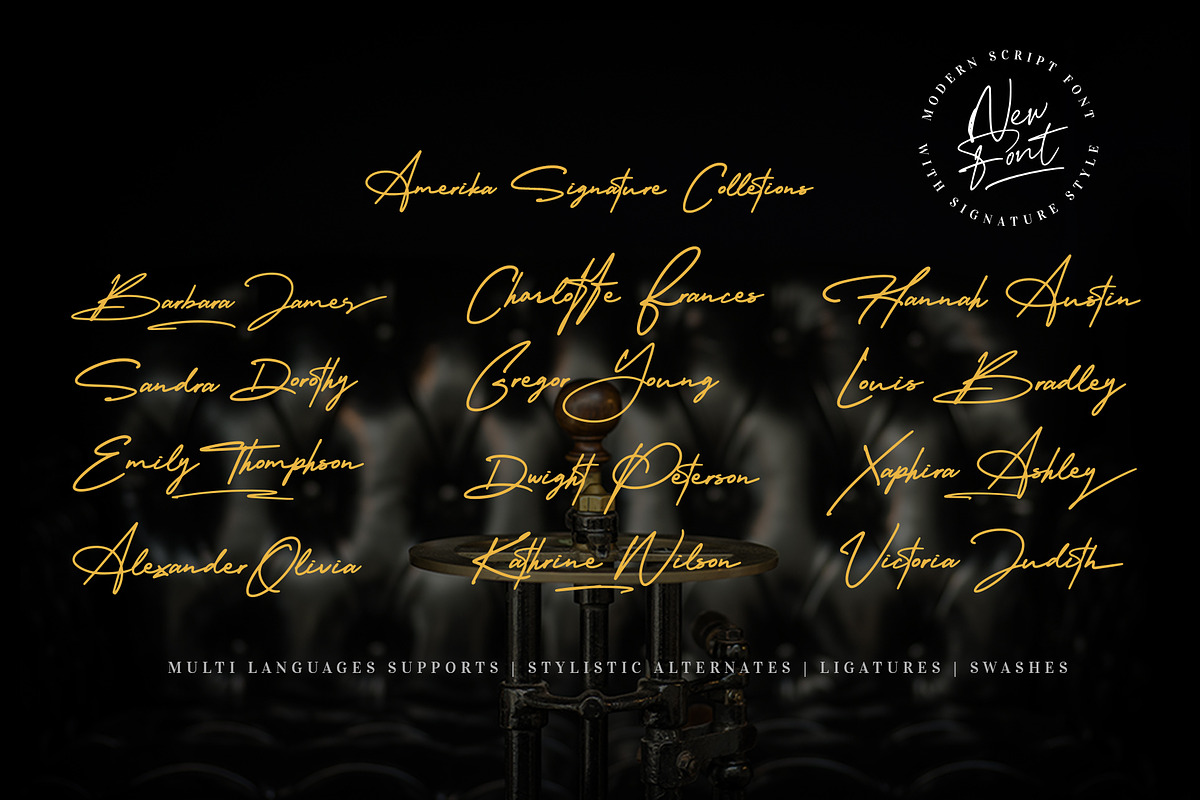 MODERN SCRIPT FONT
New
Font
WITH SIGNATURE STYLE
Amerika Signature Colletions
Barbara James
Charlotte Frances
Hannah Austin
Sandra Dorothy
Gregor Young
Louis Bradley
Emily Thomphson
Dwight Peterson
Xaphira Ashley
Alexander Olivia
Kathrine Wilson
Victoria Judith
MULTI LANGUAGES SUPPORTS | STYLISTIC ALTERNATES | LIGATURES | SWASHES